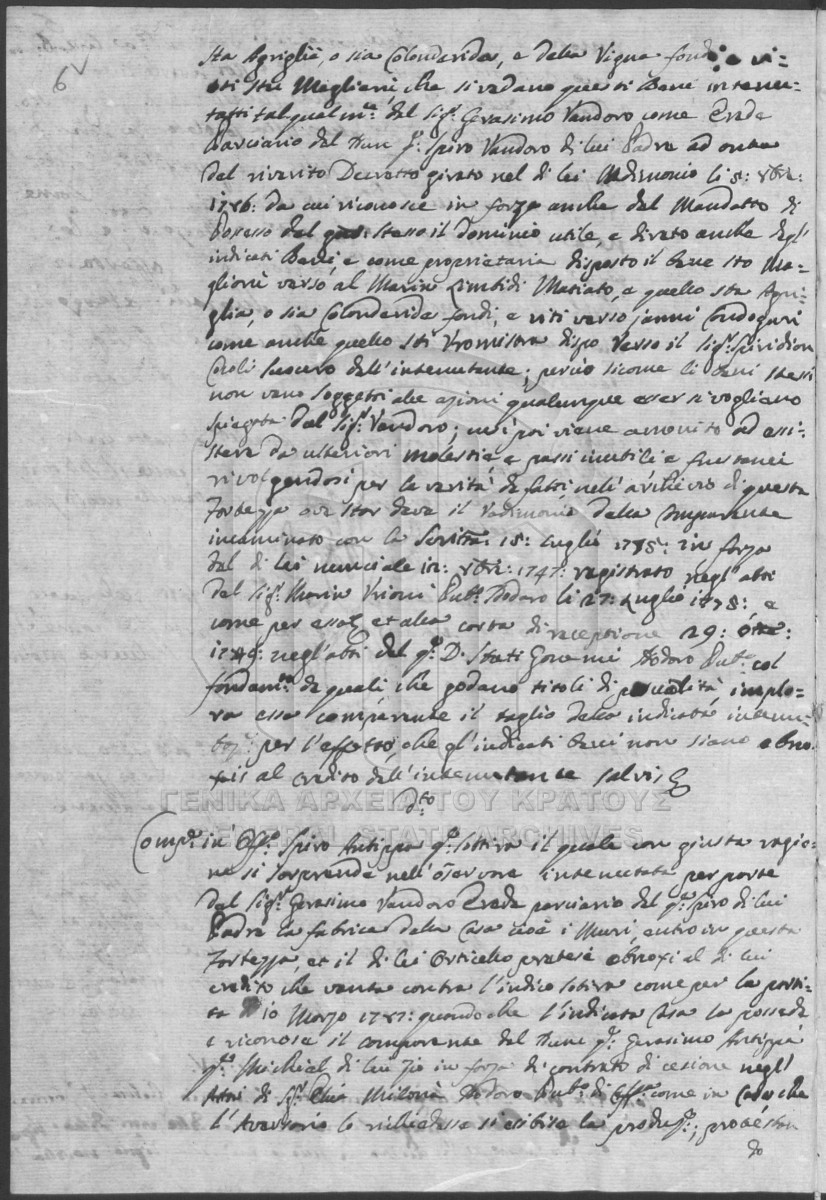 6
sta Agriglié, o sia Colondarida, e della Vigna fondi e vi=
sti Meglieri, che si vedano questi Beni intenu=
tatti tal qual mte. del Sigr. Gerasimo Vandoro come Erede
Parciario del qm. Spiro Vandoro di lui Padre ad onta
del riverito Decretto girato nel di lei Vadimonio li 5: xbre:
1786: da cui riconosce in forza anche del Mandatto di
Possesso stesso il dominio utile, e dirato anche degl'
indicati Beni, e come proprietaria disposto il bene sto Ma=
glioni verso al Marin Matiato, e quello sta Agri=
glia, o sia Colondarida fondi, e viti verso Janni
come anche quello sti Vromistra dispo. verso il Sigr. Spiridion
Coroli Suocero dell'intenutante; perciò sicome li beni stessi
non vano soggetti alle azioni qualunque esser si vogliano
spiegate dal Sigr. Vandoro; così poi viene amonito ad assi=
stersi da ulteriori molestie e passi inutili e frustanei
rivolgendosi per la verità de fatti nell'archivio di questa
Fortezza ove star deve il Vadimonio della Comparente
incaminato con la Scritra: 15: Luglio 1785: in forza
dal di lei nunciale 12: xbre: 1747: registrato negl'atti
del Sigr. Marin Vrioni Pubo. Nodaro li 27: Luglio 1778: e
come per essa, et altra carta di receptione 29: ottre:
1749: negl'atti del qm. D. Stati Gonemi Nodaro Pubo. col
fondamto. de quali che godano titoli di pocalità, implo=
ra essa comparente il taglio della indicata intenu=
toe. per l'effetto, che gl'indicati beni non siano obno=
xii al credito dell'intenutante salvis
Dto
Compe. in Offo. Spiro Antippa qm. Sottira il quale con giusta ragio=
ne si sorprende nell'osservare intenutata per parte
del Sigr. Gerasimo Vandoro Erede parciario del qm. Spiro di lui
Padre la fabrica della Casa cioè i Muri, entro in questa
Fortezza et il di lei Orticello pretese obnoxi al di lui
credito che vanta contra l'indico Sotira come per la parti=
ta 10 Marzo 1787: quando che l'indicata Casa la possede
e riconosce il comparente dal qm. Gerasimo Antippa
qm. Michiel di lui Zio in forza di contrato di cesione negl'
Atti di Sr. Elia Miloná Nodaro Pubo. di Offo. come in caso che
l'Avversario lo richiedesse si esibisce la produre.; protestan
do
ΓΕΝΙΚΑ ΑΡΧΕΙΑ ΤΟΥ ΚΡΑΤΟΥΣ
GENERAL STATE ARCHIVES